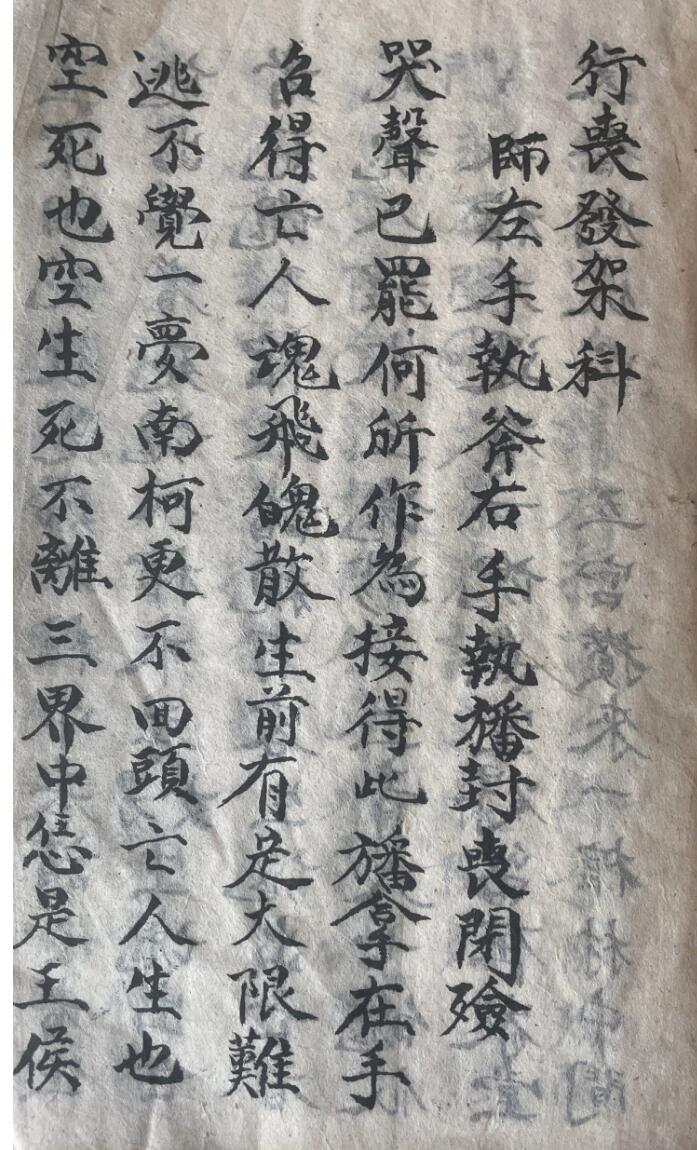 行喪發架科
師左手執斧右手執旛封喪閉殮
哭聲已罷何所作為接得此旛拿在手
召得亡人魂飛魄散生前有足大限難
逃不覺一夢南柯更不回頭亡人生也
空死也空生死不離三界中恁是王侯